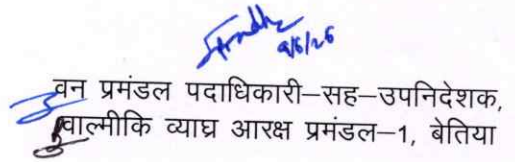 9/6/26
वन प्रमंडल पदाधिकारी–सह–उपनिदेशक,
वाल्मीकि व्याघ्र आरक्ष प्रमंडल–1, बेतिया